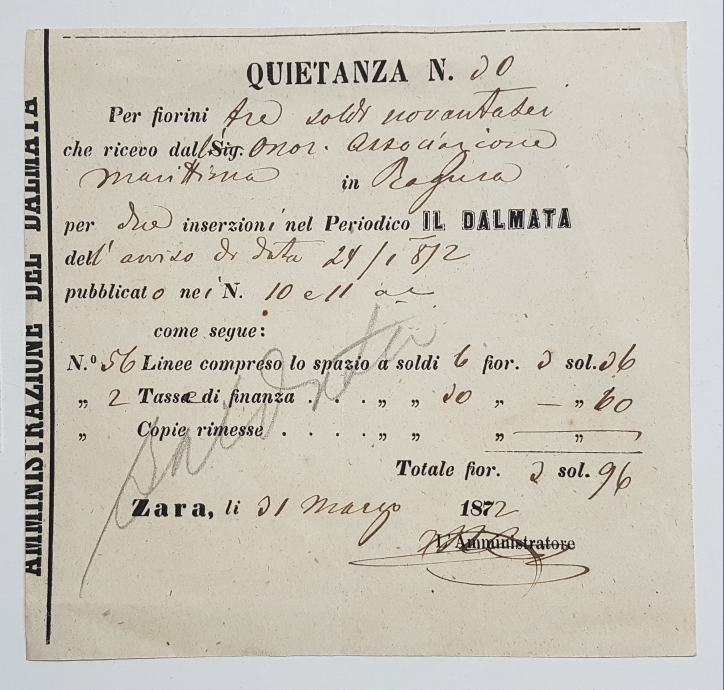 AMMINISTRAZIONE DEL DALMATA
QUIETANZA N. 30
Per fiorini tre soldi novantasei
che ricevo dall' Sig. Onor. Associazione
Marittima in Ragusa
per due inserzioni nel Periodico IL DALMATA
dell' avviso di data 24/1 872
pubblicato nei N. 10 e 11
come segue:
N.º 56 Linee compreso lo spazio a soldi 6 fior. 3 sol. 36
„ 2 Tasse di finanza . . . . „ „ 30 „ — „ 60
„ Copie rimesse . . . . „ „ „ „
Totale fior. 3 sol. 96
Zara, li 31 Marzo 1872
L'Amministratore